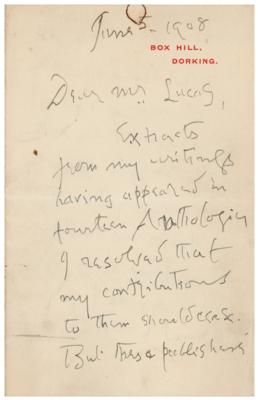 June 5. 1908
BOX HILL,
DORKING.
Dear Mr. Lucas,
Extracts
from my writings
having appeared in
fourteen Anthologies
I resolved that
my contributions
to them should cease.
But these publishers'